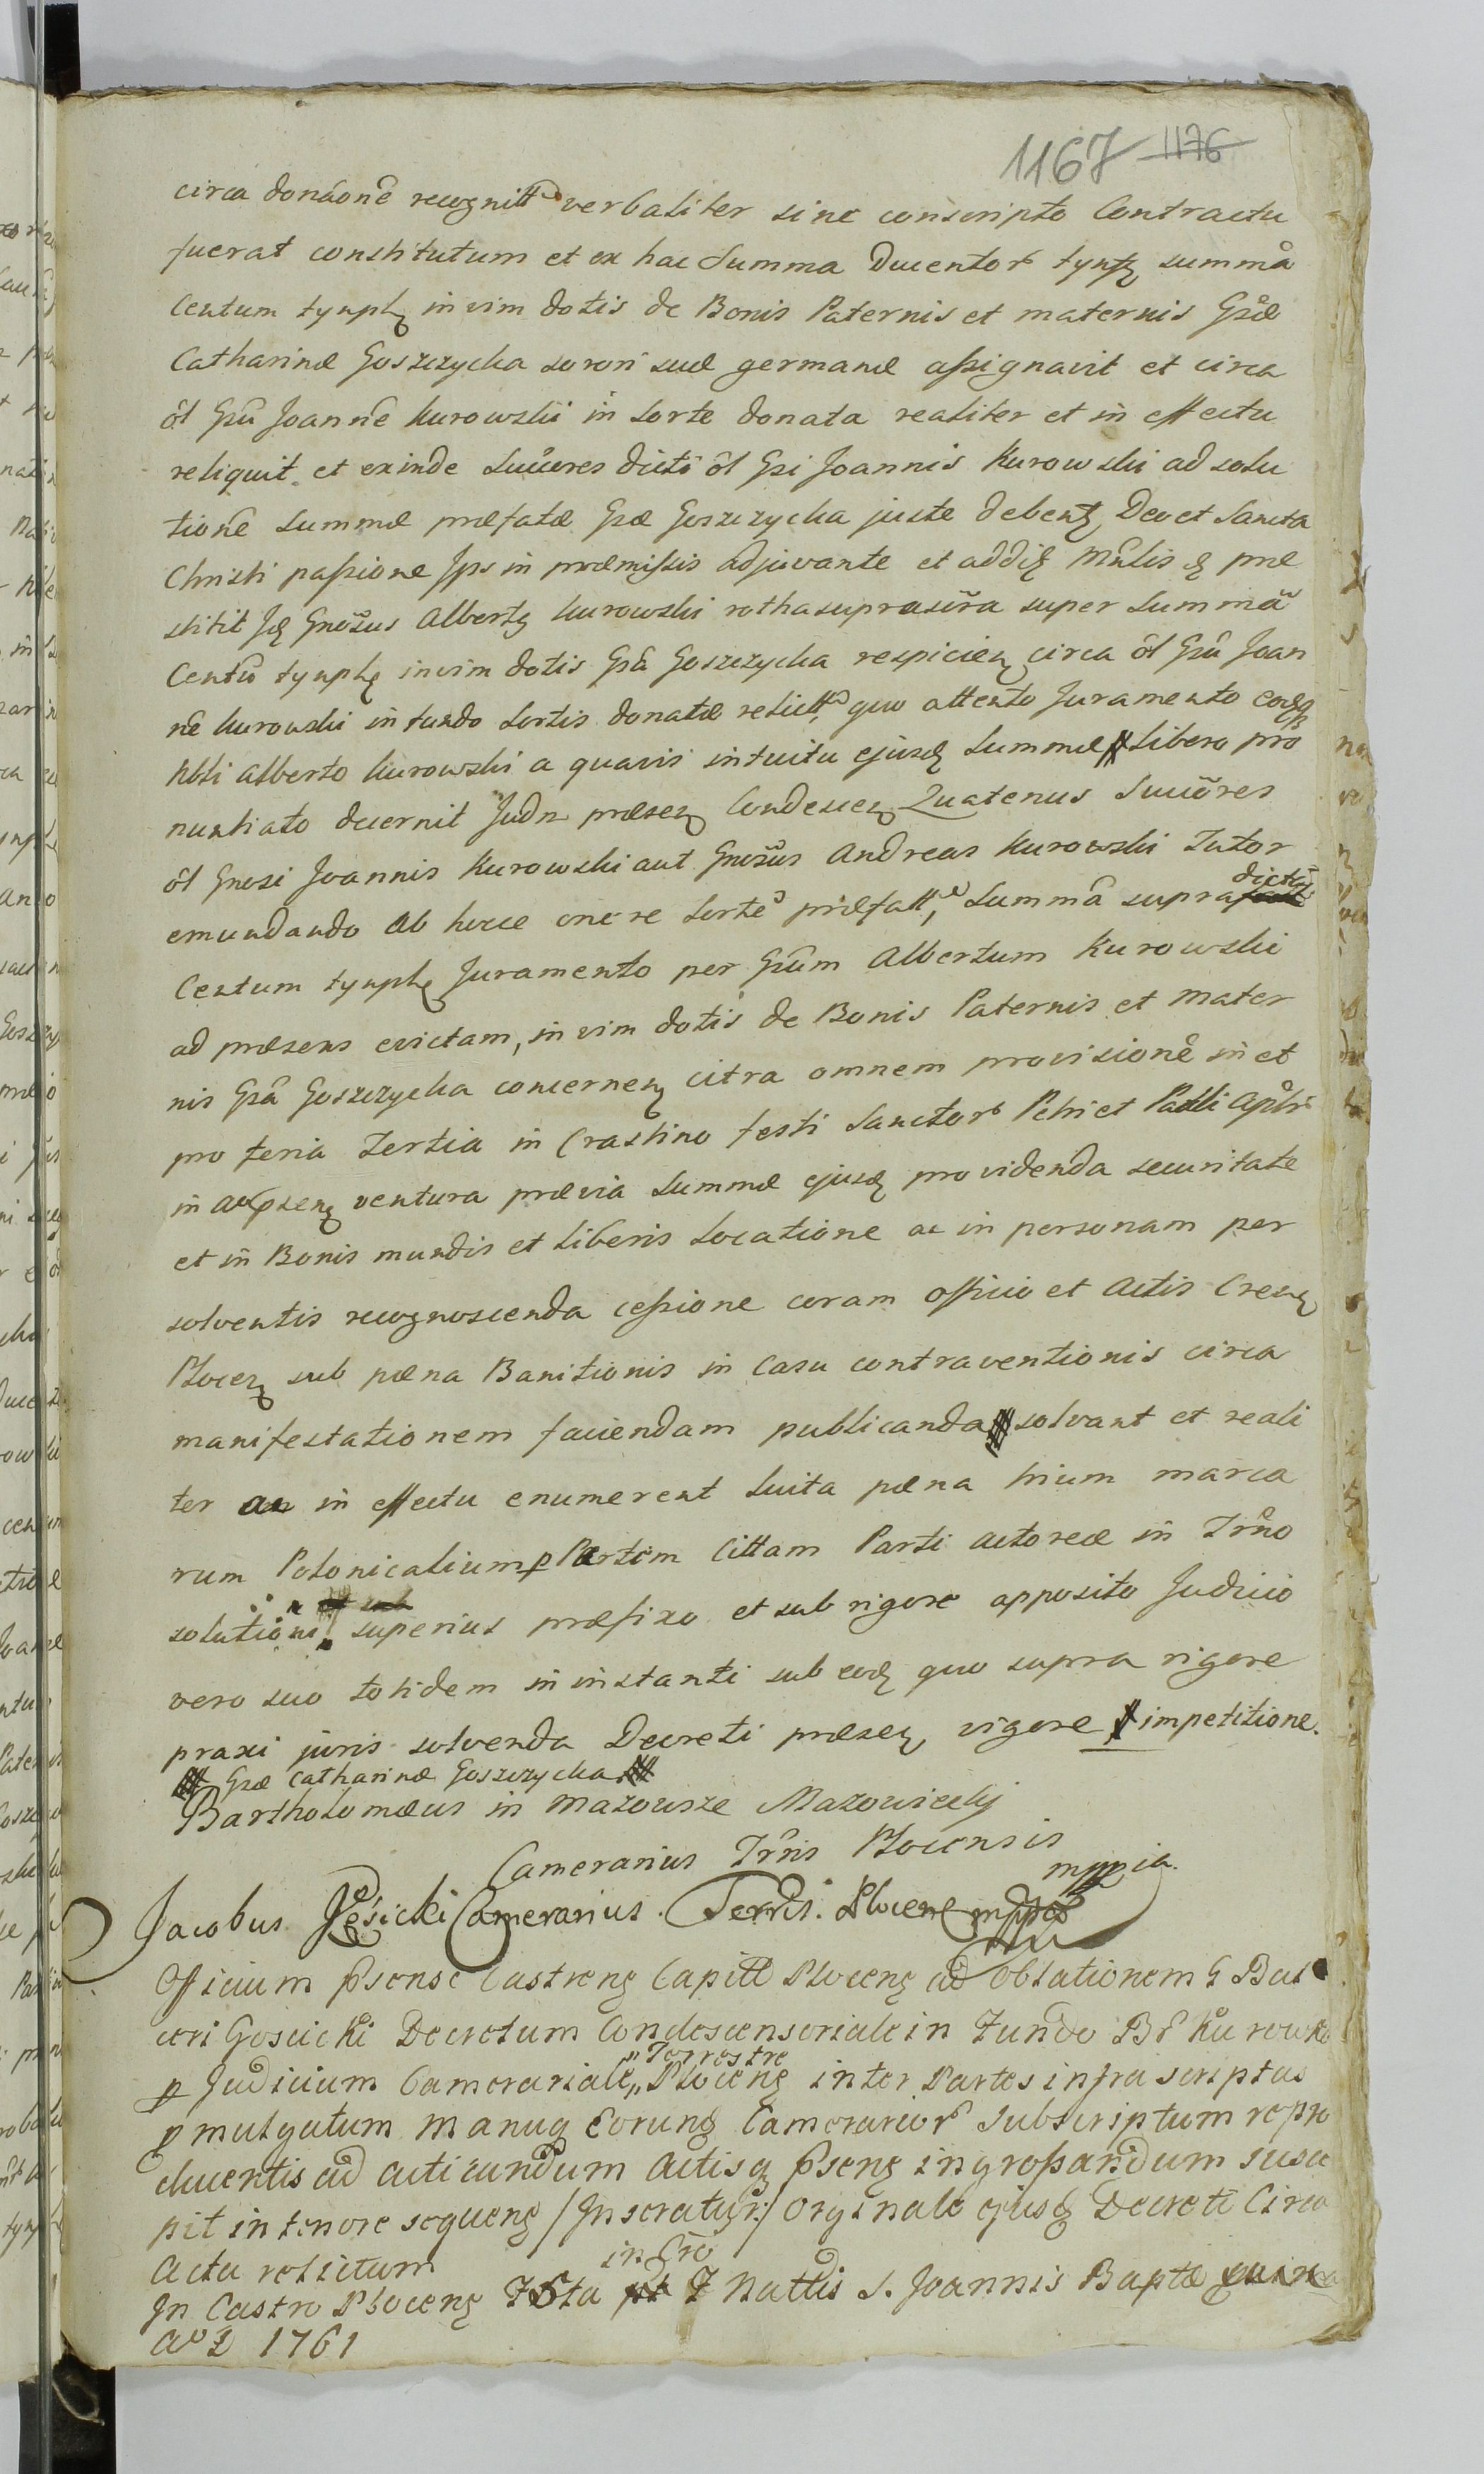 1167 1176
circa donaone recognitt verbaliter sine conscripto Contractu
fuerat constitutum et ex hac Summa Ducentor tynpf summa
Centum tynph in vim dotis de Bonis Paternis et maternis Gsæ
Catharinæ Goszczycka sorori suæ germanæ assignavit et circa
ol Gsu Joanne Kurowski in Sorte donata realiter et in effectu
reliquit. et exinde Succeres dicti ol Gsi Joannis Kurowski ad solu
tione Summæ præfatæ Gsæ Goszczycka juste debent, Deo et Sancta
Christi passione Ips in præmissis adjuvante et addiq mltis q præ
stitit Jq Gnosus Albertq Kurowski rotha suprascra super Summa
Centu tynphq in vim dotis Gsa Goszczycka respicien circa ol Gsu Joan
ne Kurowski in fundo Sortis donatæ relictt, quo attento Juramento eodq
Nbli Alberto Kurowski a quavis intuitu ejusq Summæ libero pro
nuntiato decernit Judm præsen Condescen Quatenus Succores
ol Gnosi Joannis Kurowski aut Gnosus Andreas Kurowski Tutor
emundando ab hocce onere Sorte præfatt, Summa supra dicta
Centum tynphq Juramento per Gsum Albertum Kurowski
ad præsens evictam, in vim dotis de Bonis Paternis et mater
nis Gsa Goszczycka concernen citra omnem provisione in et
pro feria Tertia in Crastino festi Sanctor Petri et Pauli Aplor
in a psenq ventura prævia Summæ ejusq providenda securitate
et in Bonis mundis et liberis locatione ac in personam per
solventis recognoscenda cessione coram officio et Actis Cren
Plocen sub pæna Banitionis in Casu contraventionis circa
manifestationem faciendam publicanda solvant et reali
ter ac in effectu enumerent luita pæna trium marca
rum Polonicalium p Partem Cittam Parti actoreæ in Trno
solutioni superius præfixo et sub rigore apposito Judicio
vero suo totidem in instanti sub eodq quo supra rigore
praxi juris solvenda Decreti præsen vigore impetitione.
Gsæ Catharinæ Goszczycka
Bartholomæus in Mazowsze Mazowiecky
Camerarius Trris Plocensis
mppia.
Jacobus Jesicki Camerarius Terris. Plocene mppa
Officium psense Castrenq Capitt Plocenq ad oblationem G Bal
ceri Goscicki Decretum Condescensoriale in Fundo Br Kurowko
p Judicium Camerariale „Terrestre„ Plocenq inter Partes infra scriptas
pmulgatum manuq Eorundq Camerarior Subscriptum repro
ducentis ad acticandum Actisq psenq ingrossandum susce
pit in tenore sequenq /Inseratur:/ Orginale ejusq Decreti Circa
Acta relictum
In Castro Plocenq in Cro F Natlis S. Joannis Bapta
Ao D 1761